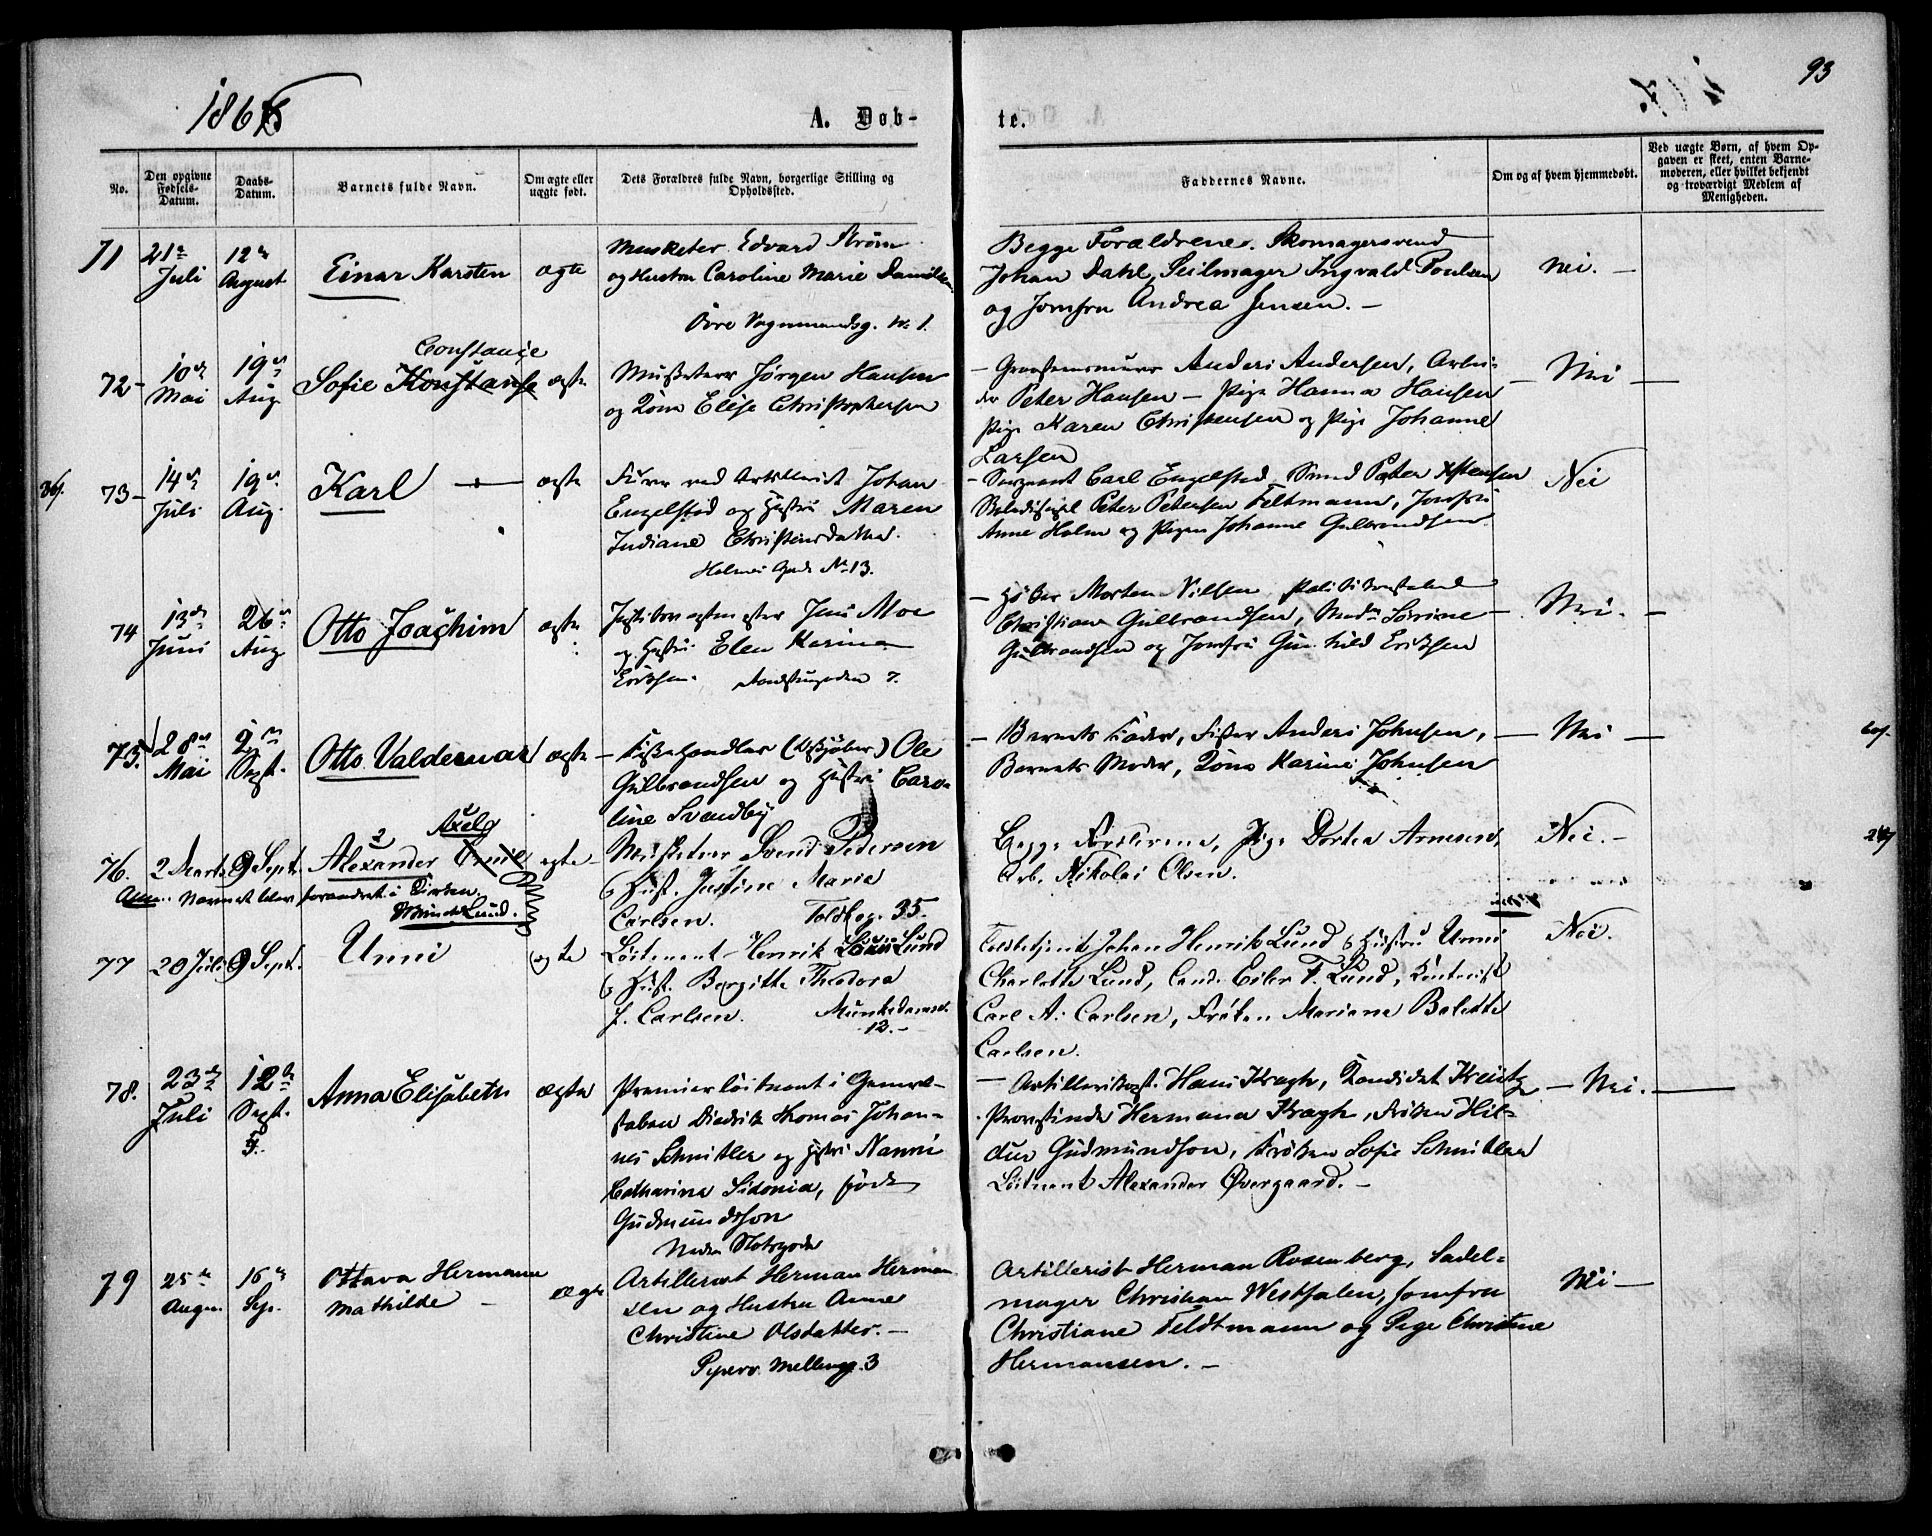 93
1866
A. Døb-
te.
No.
Den opgivne
Fødsels-
Datum.
Daabs-
Datum.
Barnets fulde Navn.
Om ægte eller
uægte født.
Dets Forældres fulde Navn, borgerlige Stilling og
Opholdssted.
Faddernes Navne.
Om og af hvem hjemmedøbt.
Ved uægte Børn, af hvem Op-
gaven er skeet, enten Barne-
moderen, eller hvilket bekjendt
og troværdigt Medlem af
Menigheden.
71
21de
Juli
12te
August
Einar Karsten
ægte
Musketer Edvard Strøm
og Hustru Caroline Marie Danielsen
Øvre Vognmandsg. No 1.
Begge Forældrene. Skomagersvend
Johan Dahl, Seilmager Ingvald Poulsen
og Jomfru Andrea Jensen. —
nei. —
72 —
10de
Mai
19de
Aug
Constanse
Sofie Konstanse
ægte
Musketeer Jørgen Hansen
og Kone Elise Christophersen
— Graastensmurer Anders Andersen, Arbei-
der Peter Hansen — Pige Hanna Hansen
Pige Karen Christensen og Pige Johanne
Larsen
— Nei —
73 —
14de
Juli
19de
Aug.
Karl —
ægte
Furer ved Artilleriet Johan
Engelstad og Hustru Maren
Indiane Christensdatter.
Holmens Gade No 13.
— Sergeant Carl Engelstad, Smed Peter
Peter Petersen Feltmann, Jomfru
Anne Holm og Pigen Johanne Gulbrandsen
Nei
74
13de
Juni
26de
Aug
Otto Joachim
ægte
Jens Moe
og Hustru Elen Karine
Eriksen. 7.
— Morten Nilsen Politikonstabel
Christian Gulbrandsen, Madm Sørine
Gulbrandsen og Jomfru Gunhild Eriksen
— Nei. —
75.
28de
Mai
2den
Sept.
Otto Valdemar
ægte —
Fiskehandler Ole
Gulbrandsen og Hustru Caro-
line Svendby
— Barnets Fader, Fisker Anders Johnsen,
Barnets Moder, Kone Karine Johnsen
— Nei —
76.
2 Marts
9 Sept.
Axel
Alexander Emil
ægte —
Anm. Navnet blev forandret i Kirken.
Musketeer Svend Pedersen
og Hust. Justine Marie
Carlsen. Toldbg. 35.
Begge Forældrene, Pige Dortea Arnesen,
Arb. Nikolai Olsen.
Nei. —
77
20 Juli
9 Sept.
Munch Lund.
Unni
ægte
Løitenant Henrik Louis Lund
og Hust. Bergitte Theodora
f. Carlsen. Munkedamsv.
12. —
Toldbetjent Johan Henrik Lund og Hustru Unni
Charlotte Lund, Cand. Eiler F. Lund, Kontorist
Carl A. Carlsen, Frøken Mariane Balette
Carlsen.
Nei.
78.
23de
Juli
12te
Sept.
Anna Elisabeth
ægte
Premierløitnant i General-
staben Diedrik Thomas Johan-
nes Schnitler og Hustru Nanni
Catharina Sidonia, født
Gudmundsson
Nedre Slotsgade
— Hans Kragh, Kandidat Kreutz
Provstinde Hermana Kragh, Frøken Hil-
dur Gudmundson, Frøken Sofie Schnitler
Løitnant Alexander Øvergaard. —
— Nei. —
79
25de
August
16de
Sep.
Ottava Hermann
Mathilde —
ægte
Artillerist Herman Herman-
sen og Hustru Anne
Christine Olsdatter. —
Piperv. Mellemg. 3
Artillerist Herman Rosenberg, Sadel-
mager Christian Westfalen, Jomfru
Christiane Feldtmann og Pige Christine
Hermansen. —
Nei —